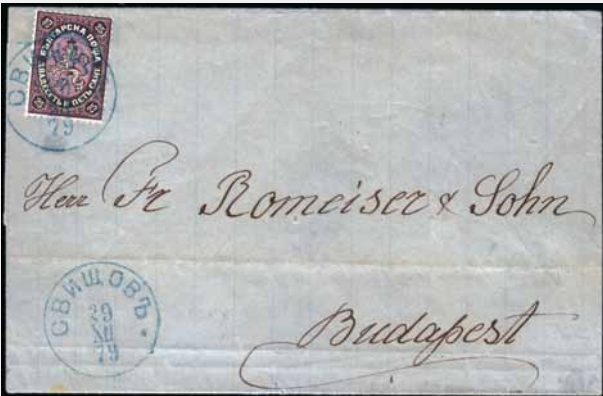 БЪЛГАРСКА ПОЩА
25
СВИ
79
Herr Fr Romeiser & Sohn
СВИЩОВЪ
29
XII
79
Budapest